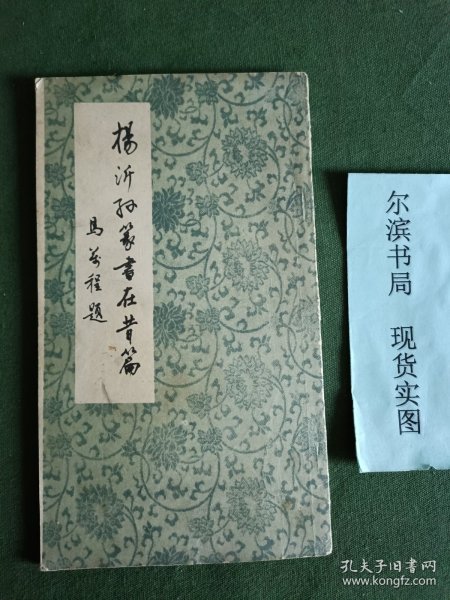 楊沂孙篆書在昔篇
马萬程題
尔滨书局 现货实图
孔夫子旧书网
www.kongfz.com